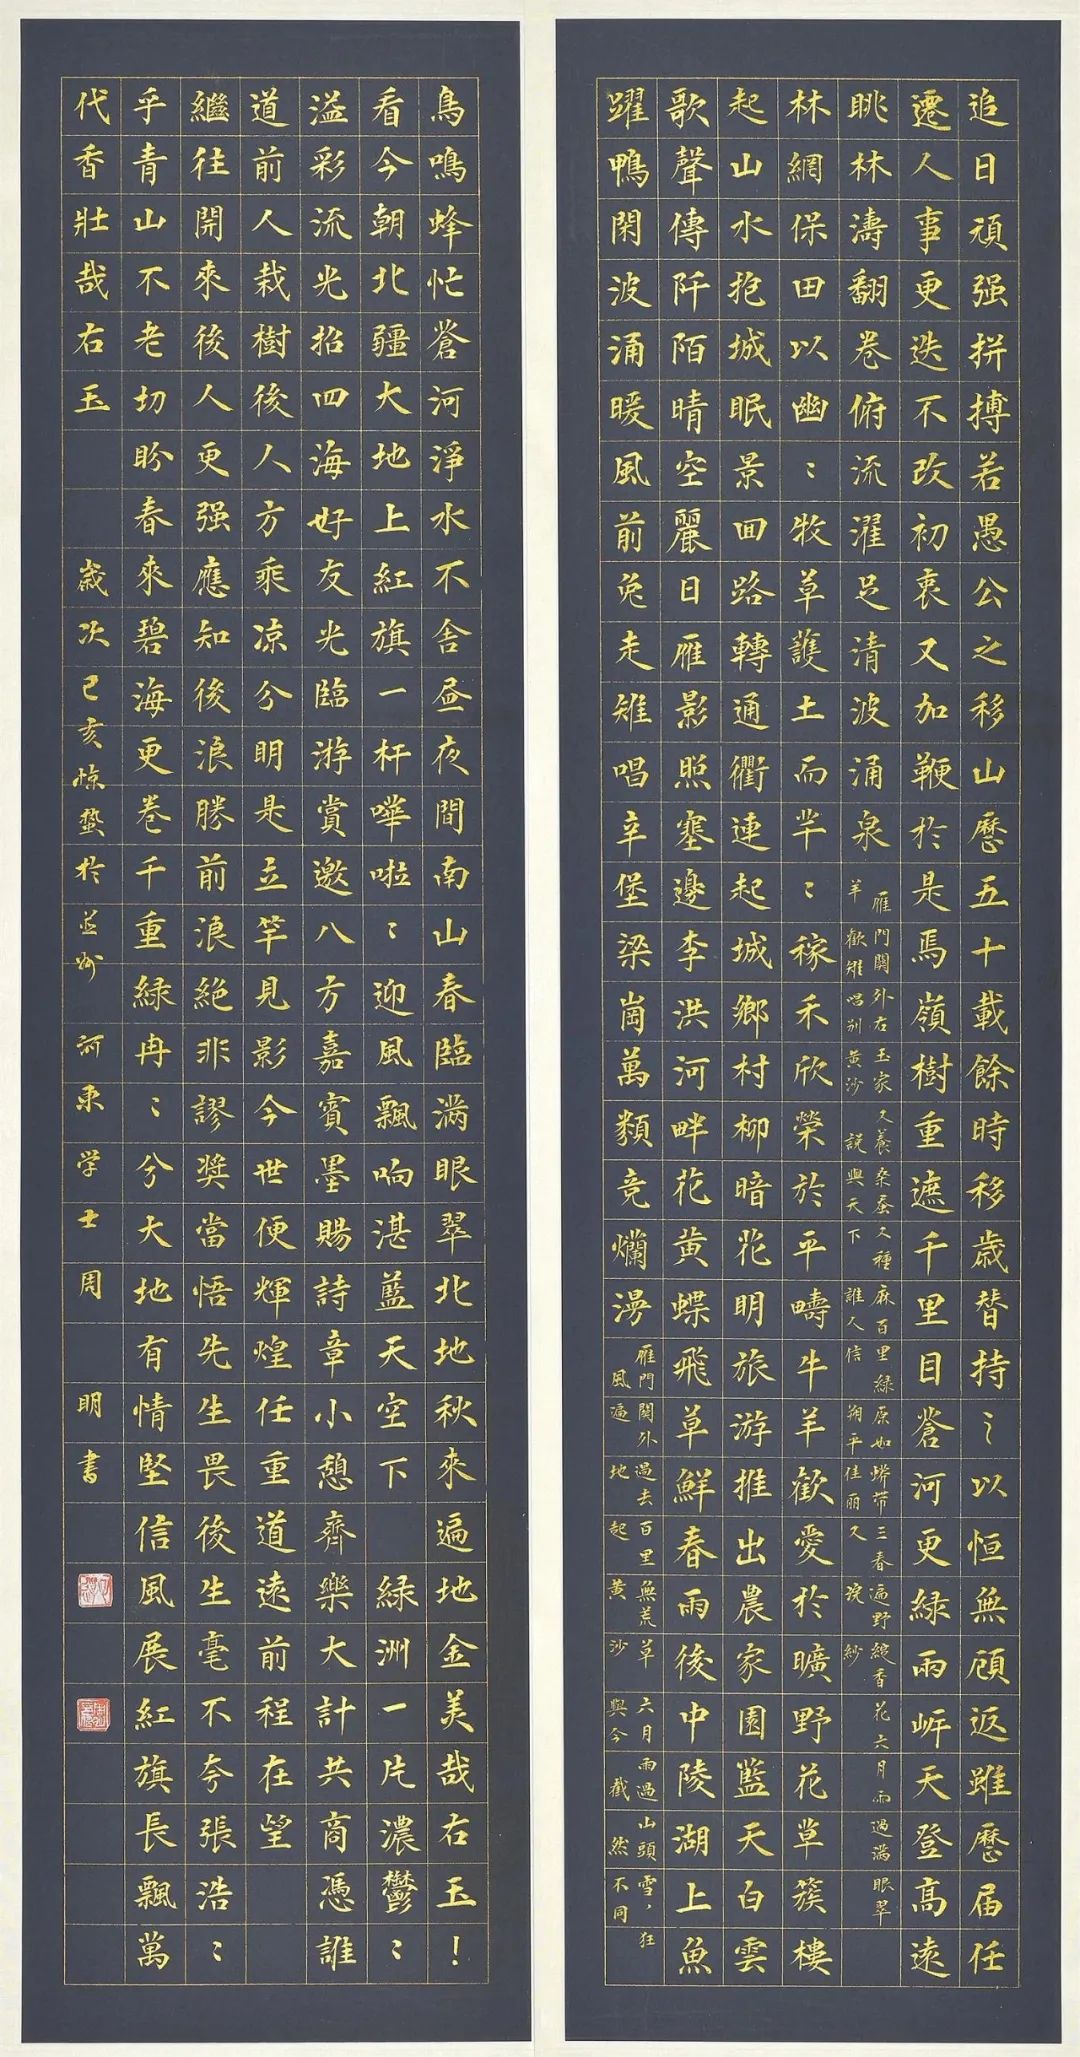 追日頑强拼搏若愚公之移山歷五十載餘時移歲替持之以恒無顧返雖歷届任
遷人事更迭不改初衷又加鞭於是馬嶺樹重遮千里目蒼河更緑雨岍天登高遠
眺林濤翻卷俯流濯足清波涌泉
雁門關外右玉家不養桑蚕不種麻百里緑原如蟒带三春遍野綻香花六月雨過滿眼翠
羊歡雉唱别黄沙説與天下誰人信朔平佳丽不浣紗
林網保田以幽〻牧草護土而芊〻稼禾欣榮於平疇牛羊歡愛於曠野花草簇樓
起山水抱城眠景回路轉通衢連起城鄉村柳暗花明旅游推出農家園藍天白雲
歌聲傳阡陌晴空麗日雁影照塞邊李洪河畔花黄蝶飛草鮮春雨後中陵湖上魚
躍鴨閑波涌暖風前兔走雉唱辛堡梁崗萬類竞爛漫
雁門關外過去百里無荒草六月雨過山頭雪，狂
風遍地起黄沙與今截然不同
鳥鳴蜂忙蒼河淨水不舍昼夜間南山春臨滿眼翠北地秋來遍地金美哉右玉！
看今朝北疆大地上紅旗一杆嘩啦〻迎風飄响湛藍天空下 緑洲一片濃鬱〻
溢彩流光招四海好友光臨游賞邀八方嘉賓墨賜詩章小憩齊樂大計共商憑誰
道前人栽樹後人方乘凉分明是立竿見影今世便輝煌任重道遠前程在望
繼往開來後人更强應知後浪勝前浪絶非謬奬當悟先生畏後生毫不夸張浩〻
乎青山不老切盼春來碧海更卷千重緑冉〻兮大地有情堅信風展紅旗長飄萬
代香壯哉右玉 歲次己亥惊蟄於並州 河東学士周明書